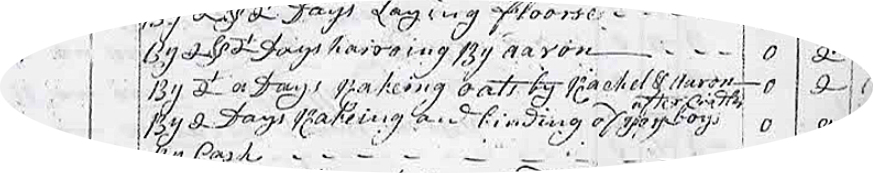 By 2 Days Laying floorse - -
By 2 Days harrowing By aaron - - - 0 2
By a Days Rakeing oats by Rachel & Aaron 0 2
after
By 2 Days Rakeing and binding of your boys 0 2
By Cash - - - - - -